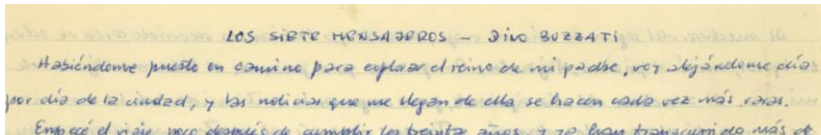 LOS SIETE MENSAJEROS - DINO BUZZATI
Habiéndome puesto en camino para explorar el reino de mi padre, voy alejándome día
por día de la ciudad, y las noticias que me llegan de ella se hacen cada vez más raras.
Empecé el viaje poco después de cumplir los treinta años, y ya han transcurrido más de